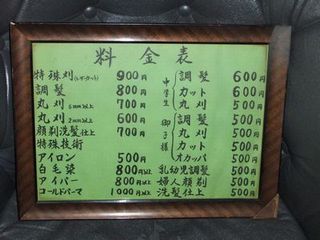 料金表
特殊刈(レザーカット) 900円
調髪 800円
丸刈 6mm以上 700円
丸刈 2mm以上 600円
顔剃洗髪仕上 700円
特殊技術
アイロン 500円
白毛染 800円以上
アイパー 800円以上
コールドパーマ 1000円以上
中学生
調髪 600円
カット 600円
丸刈 500円
御子様
調髪 500円
カット 500円
オカッパ 500円
乳幼児調髪 500円
婦人顔剃 500円
洗髪仕上 500円